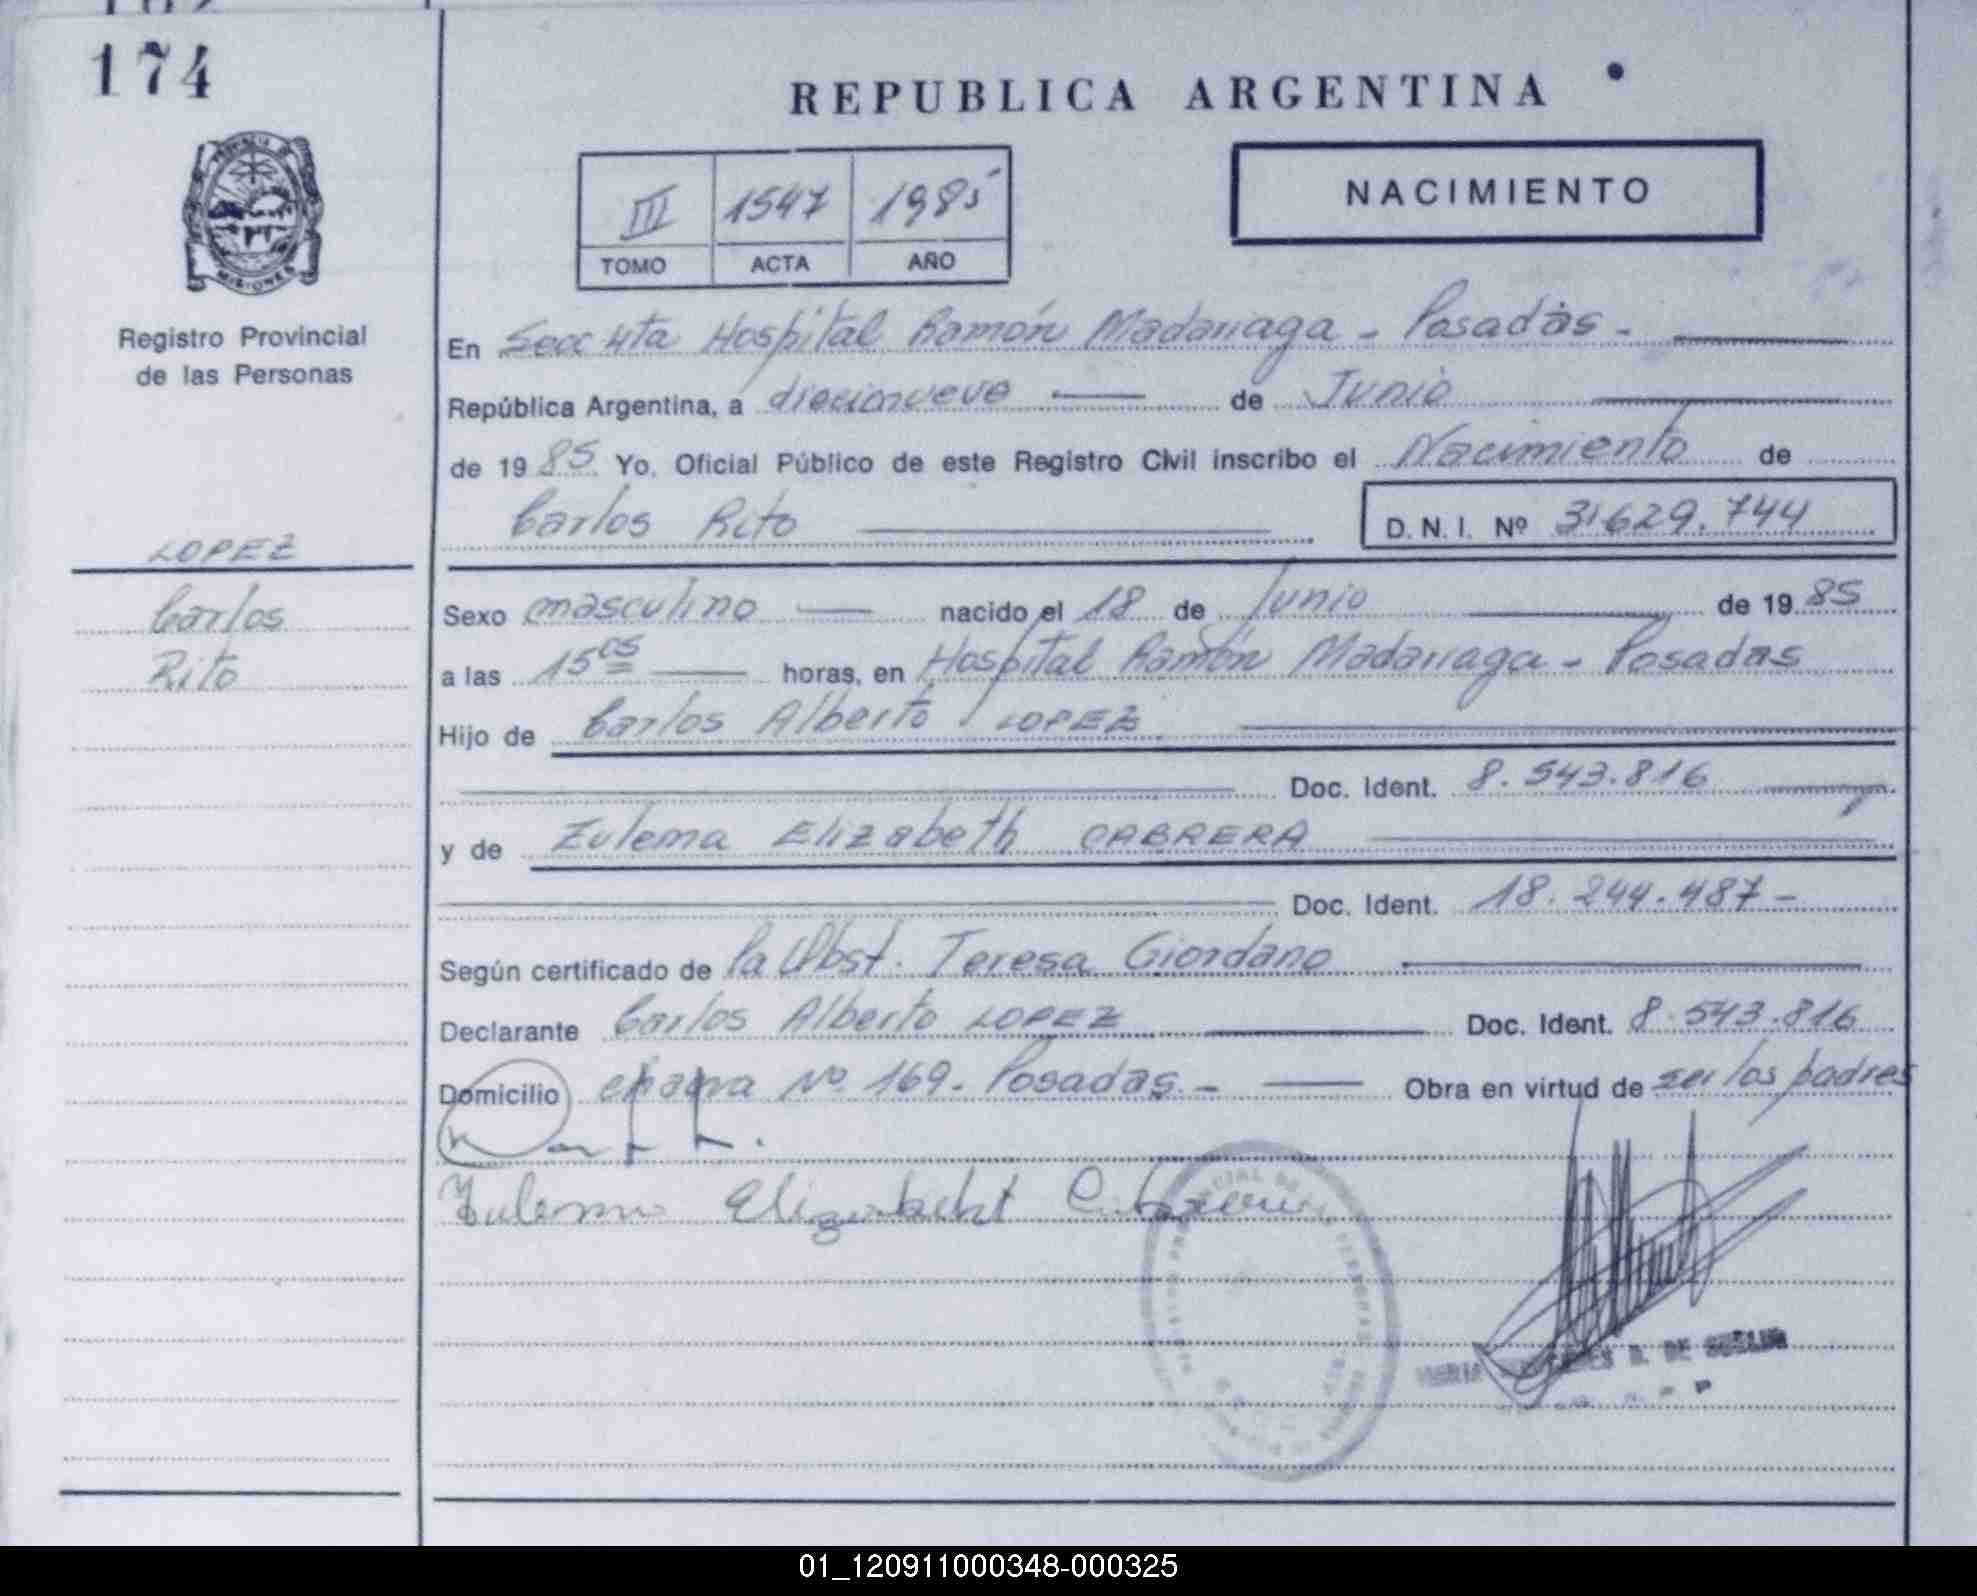 174
REPUBLICA ARGENTINA
NACIMIENTO
III 1547 1985
TOMO ACTA AÑO
PROVINCIA DE
MISIONES
Registro Provincial
de las Personas
LOPEZ
Carlos
Rito
En Secc 4ta Hospital Ramón Madariaga - Posadas -
República Argentina, a diecinueve de Junio
de 1985 Yo, Oficial Público de este Registro Civil inscribo el Nacimiento de
Carlos Rito D.N.I. Nº 31.629.744
Sexo masculino nacido el 18 de Junio de 1985
a las 15 05 horas, en Hospital Ramón Madariaga - Posadas
Hijo de Carlos Alberto LOPEZ
Doc. Ident. 8.543.816
y de Zulema Elizabeth CABRERA
Doc. Ident. 18.244.487 -
Según certificado de la Obst. Teresa Giordano
Declarante Carlos Alberto LOPEZ Doc. Ident. 8.543.816
Domicilio chacra Nº 169 - Posadas - Obra en virtud de ser los padres
Zulema Elizabeht Cabrera
01_120911000348-000325